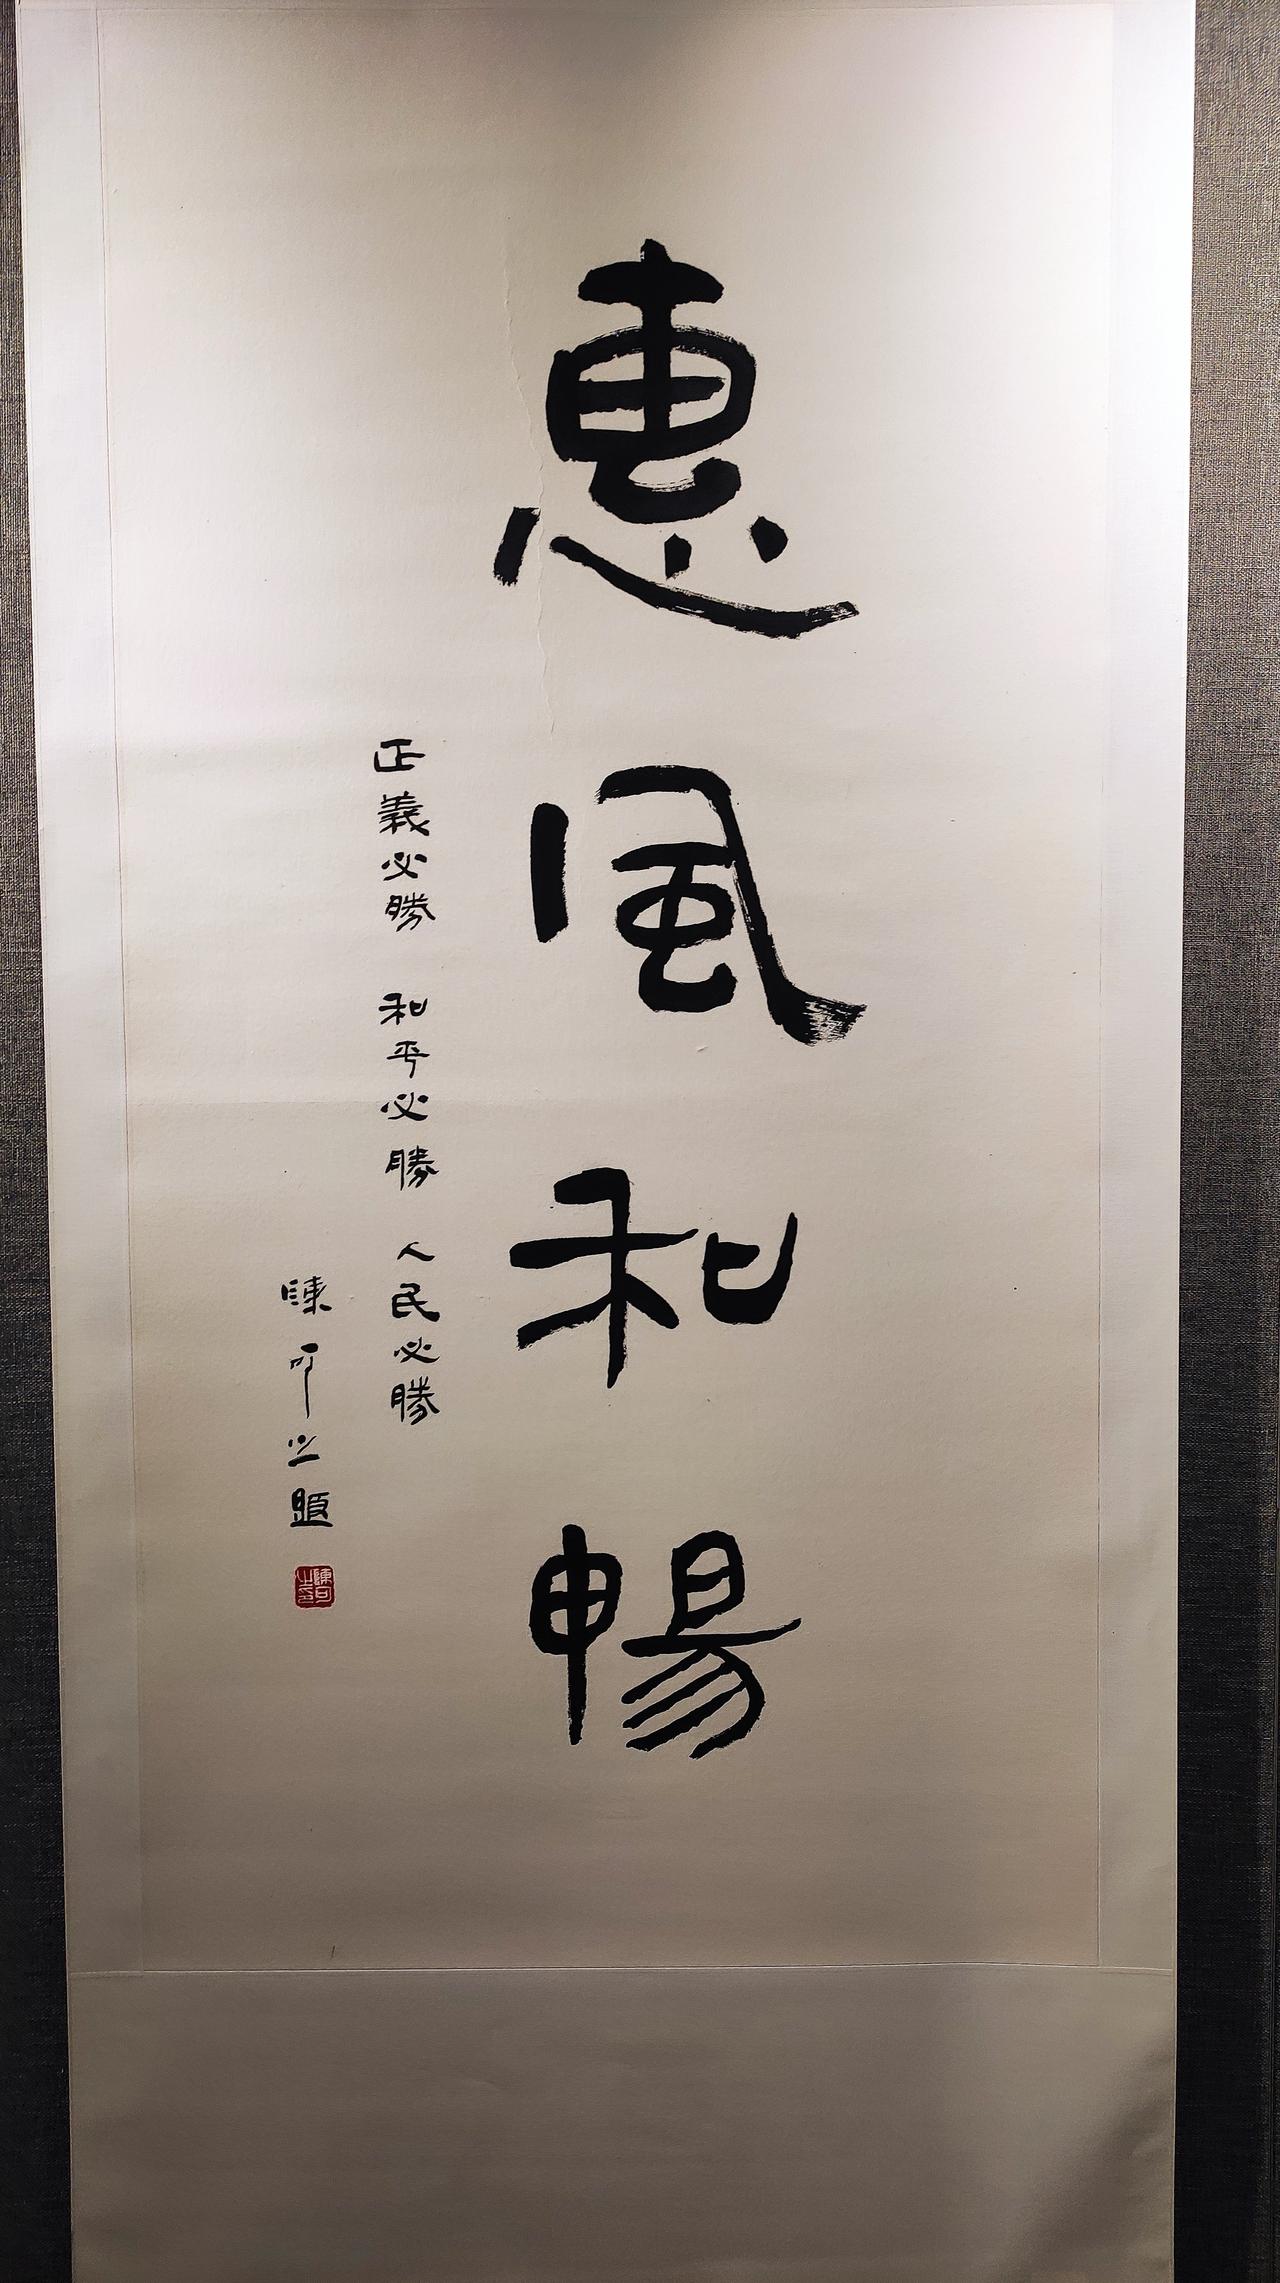 惠風和暢
正義必勝 和平必勝 人民必勝
陳可之題
陳可之印